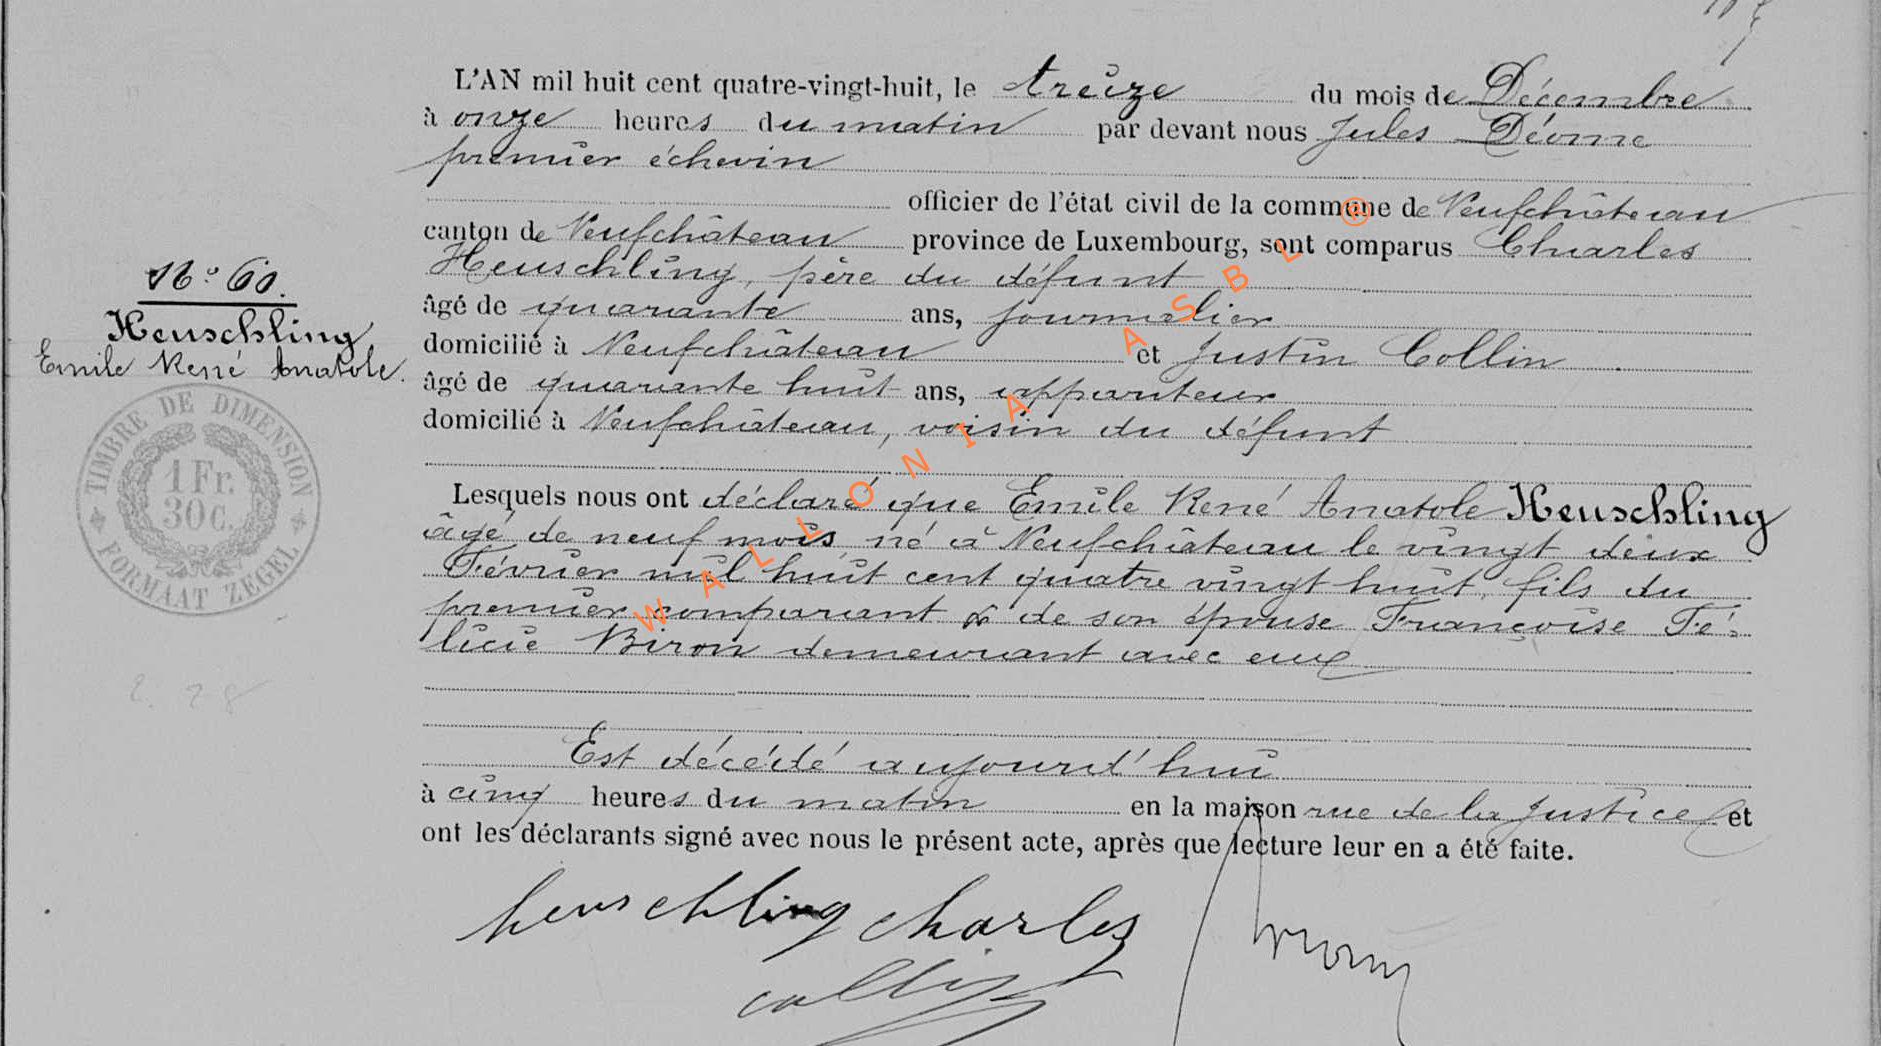 L'AN mil huit cent quatre-vingt-huit, le treize du mois de Décembre
à onze heures du matin par devant nous Jules Déome
premier échevin
officier de l'état civil de la commune de Neufchâteau
canton de Neufchâteau province de Luxembourg, sont comparus Charles
Heuschling, père du défunt
âgé de quarante ans, journalier
domicilié à Neufchâteau et Justin Collin
âgé de quarante huit ans, appariteur
domicilié à Neufchâteau, voisin du défunt
Lesquels nous ont déclaré que Emile René Anatole Heuschling
âgé de neuf mois né à Neufchâteau le vingt deux
Février mil huit cent quatre vingt huit, fils du
premier comparant & de son épouse Françoise Fé-
licie Biron demeurant avec eux
Est décédé aujourd'hui
à cinq heures du matin en la maison rue de la Justice et
ont les déclarants signé avec nous le présent acte, après que lecture leur en a été faite.
heuschling charles
collin
N° 60.
Heuschling
Emile René Anatole.
TIMBRE DE DIMENSION
1 Fr.
30 C.
FORMAAT ZEGEL
WALLONIA ASBL ®